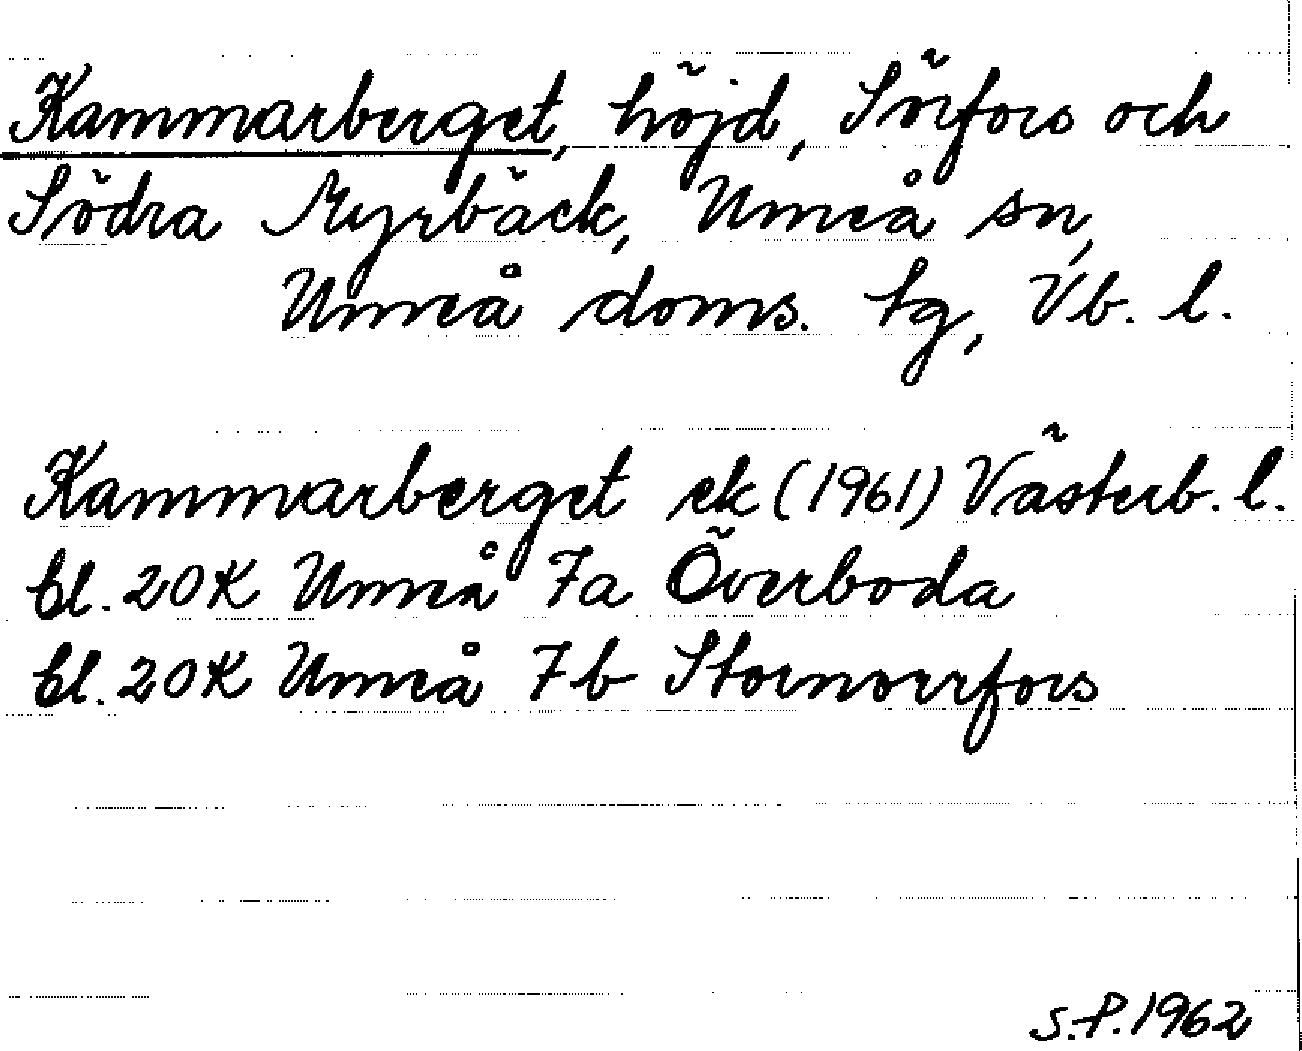 Kammarberget, höjd, Sörfors och
Södra Myrbäck, Umeå sn,
Umeå doms. tg, Vb. l.
Kammarberget ek (1961) Västerb. l.
bl. 20K Umeå 7a Överboda
bl. 20K Umeå 7b Stornorrfors
S.P. 1962